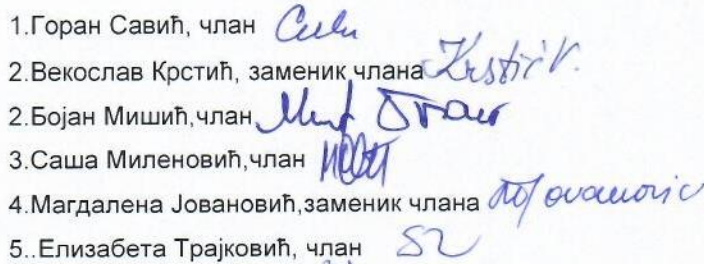 1.Горан Савић, члан
2.Векослав Крстић, заменик члана Krstić V.
2.Бојан Мишић,члан
3.Саша Миленовић,члан
4.Магдалена Јовановић,заменик члана MJovanović
5..Елизабета Трајковић, члан